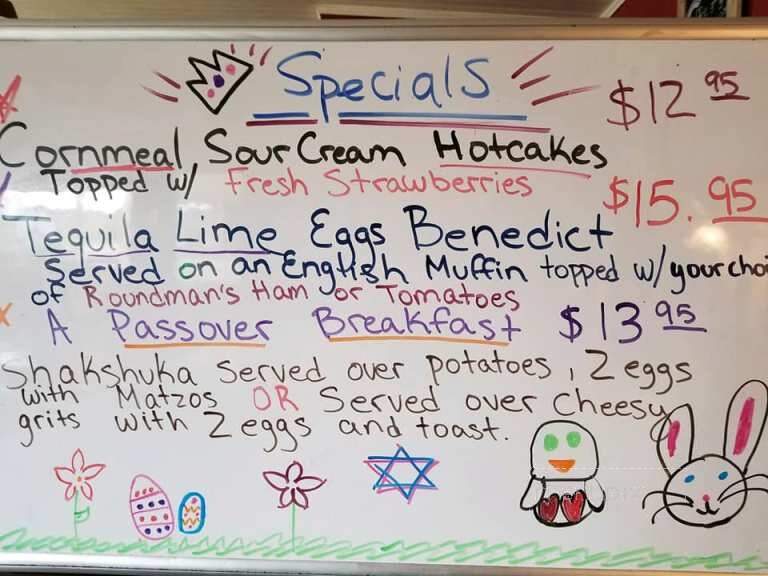 Specials
$12 95
Cornmeal Sour Cream Hotcakes
Topped w/ Fresh Strawberries
$15.95
Tequila Lime Eggs Benedict
Served on an English Muffin topped w/ your choi
of Roundman's Ham or Tomatoes
A Passover Breakfast $13 95
Shakshuka served over potatoes, 2 eggs
with Matzos OR Served over cheesy
grits with 2 eggs and toast.